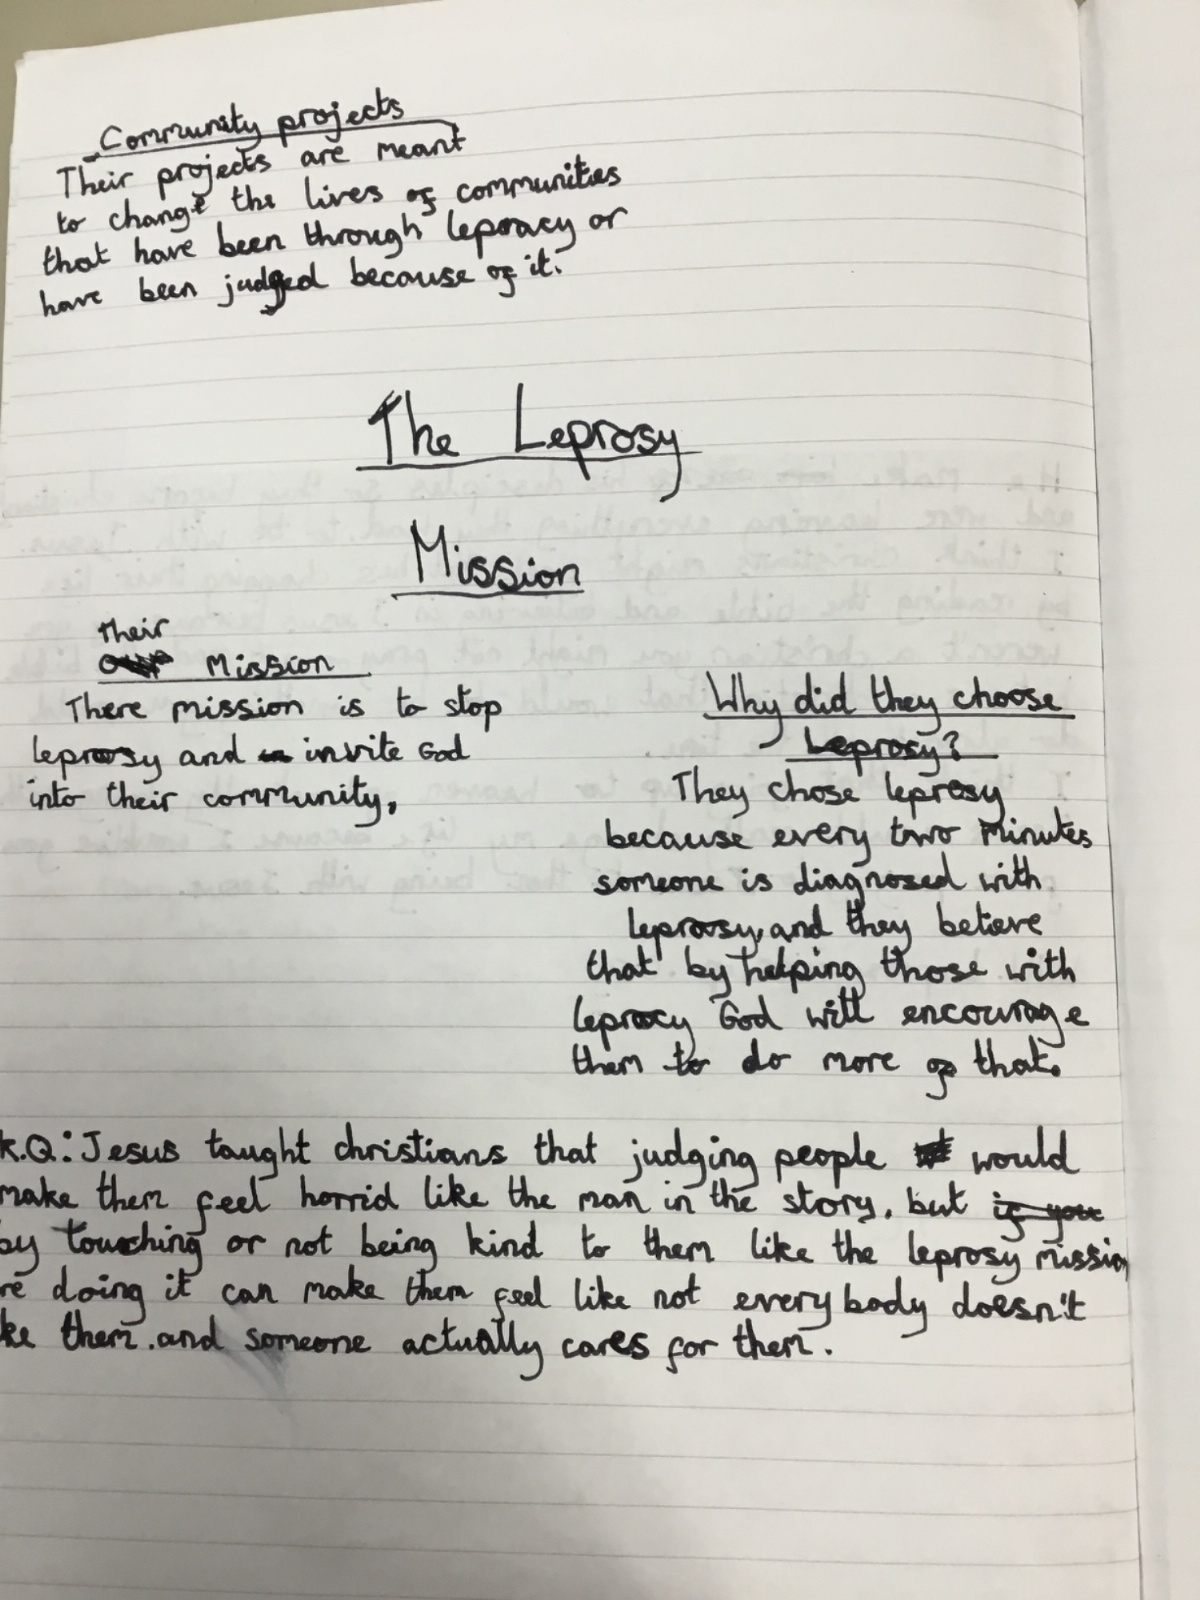 Community projects
Their projects are meant
to change the lives of communities
that have been through lepracy or
have been judged because of it.
The Leprosy
Mission
Their
Mission
There mission is to stop
leprosy and invite God
into their community,
Why did they choose
Leprosy?
They chose leprosy
because every two minutes
someone is diagnosed with
leprosy, and they believe
that by helping those with
leprocy God will encourage
them to do more of that.
K.Q.: Jesus taught christians that judging people would
make them feel horrid like the man in the story, but
by touching or not being kind to them like the leprosy mission
re doing it can make them feel like not everybody doesn't
ke them. and someone actually cares for them.